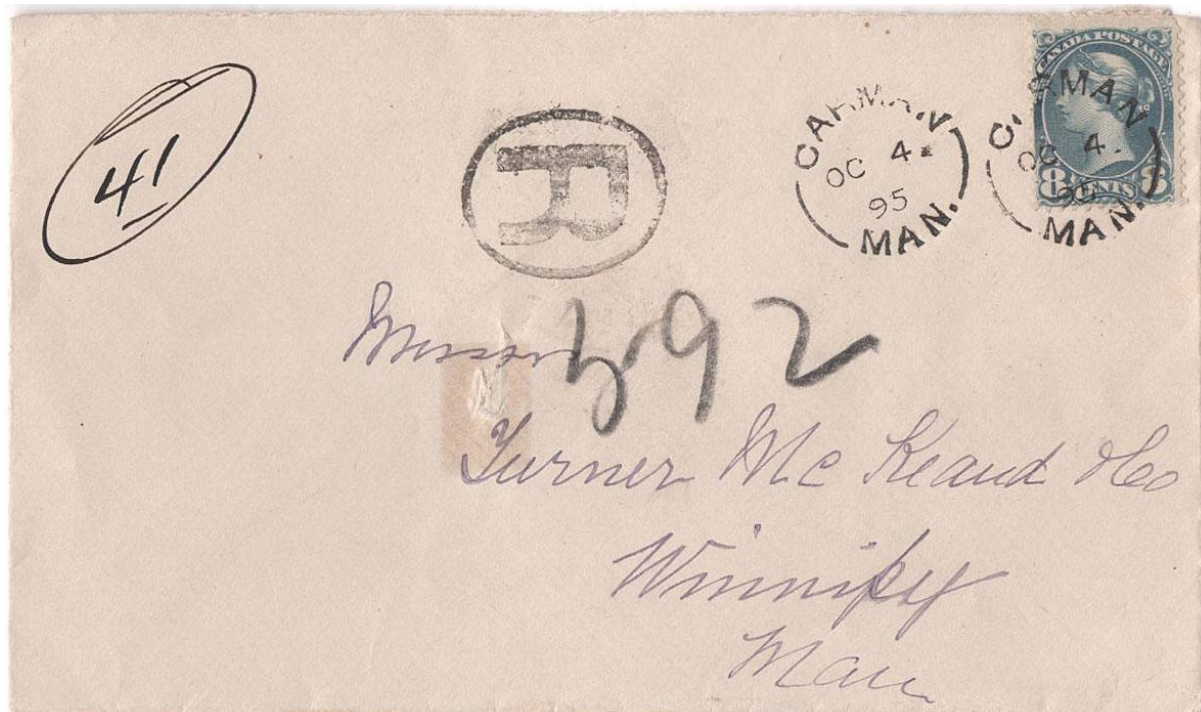 41
R
CARMAN
OC 4
95
MAN.
CANADA POSTAGE
8 CENTS 8
CARMAN
OC 4
95
MAN.
Messrs
592
Turner McKeand &Co
Winnipeg
Man